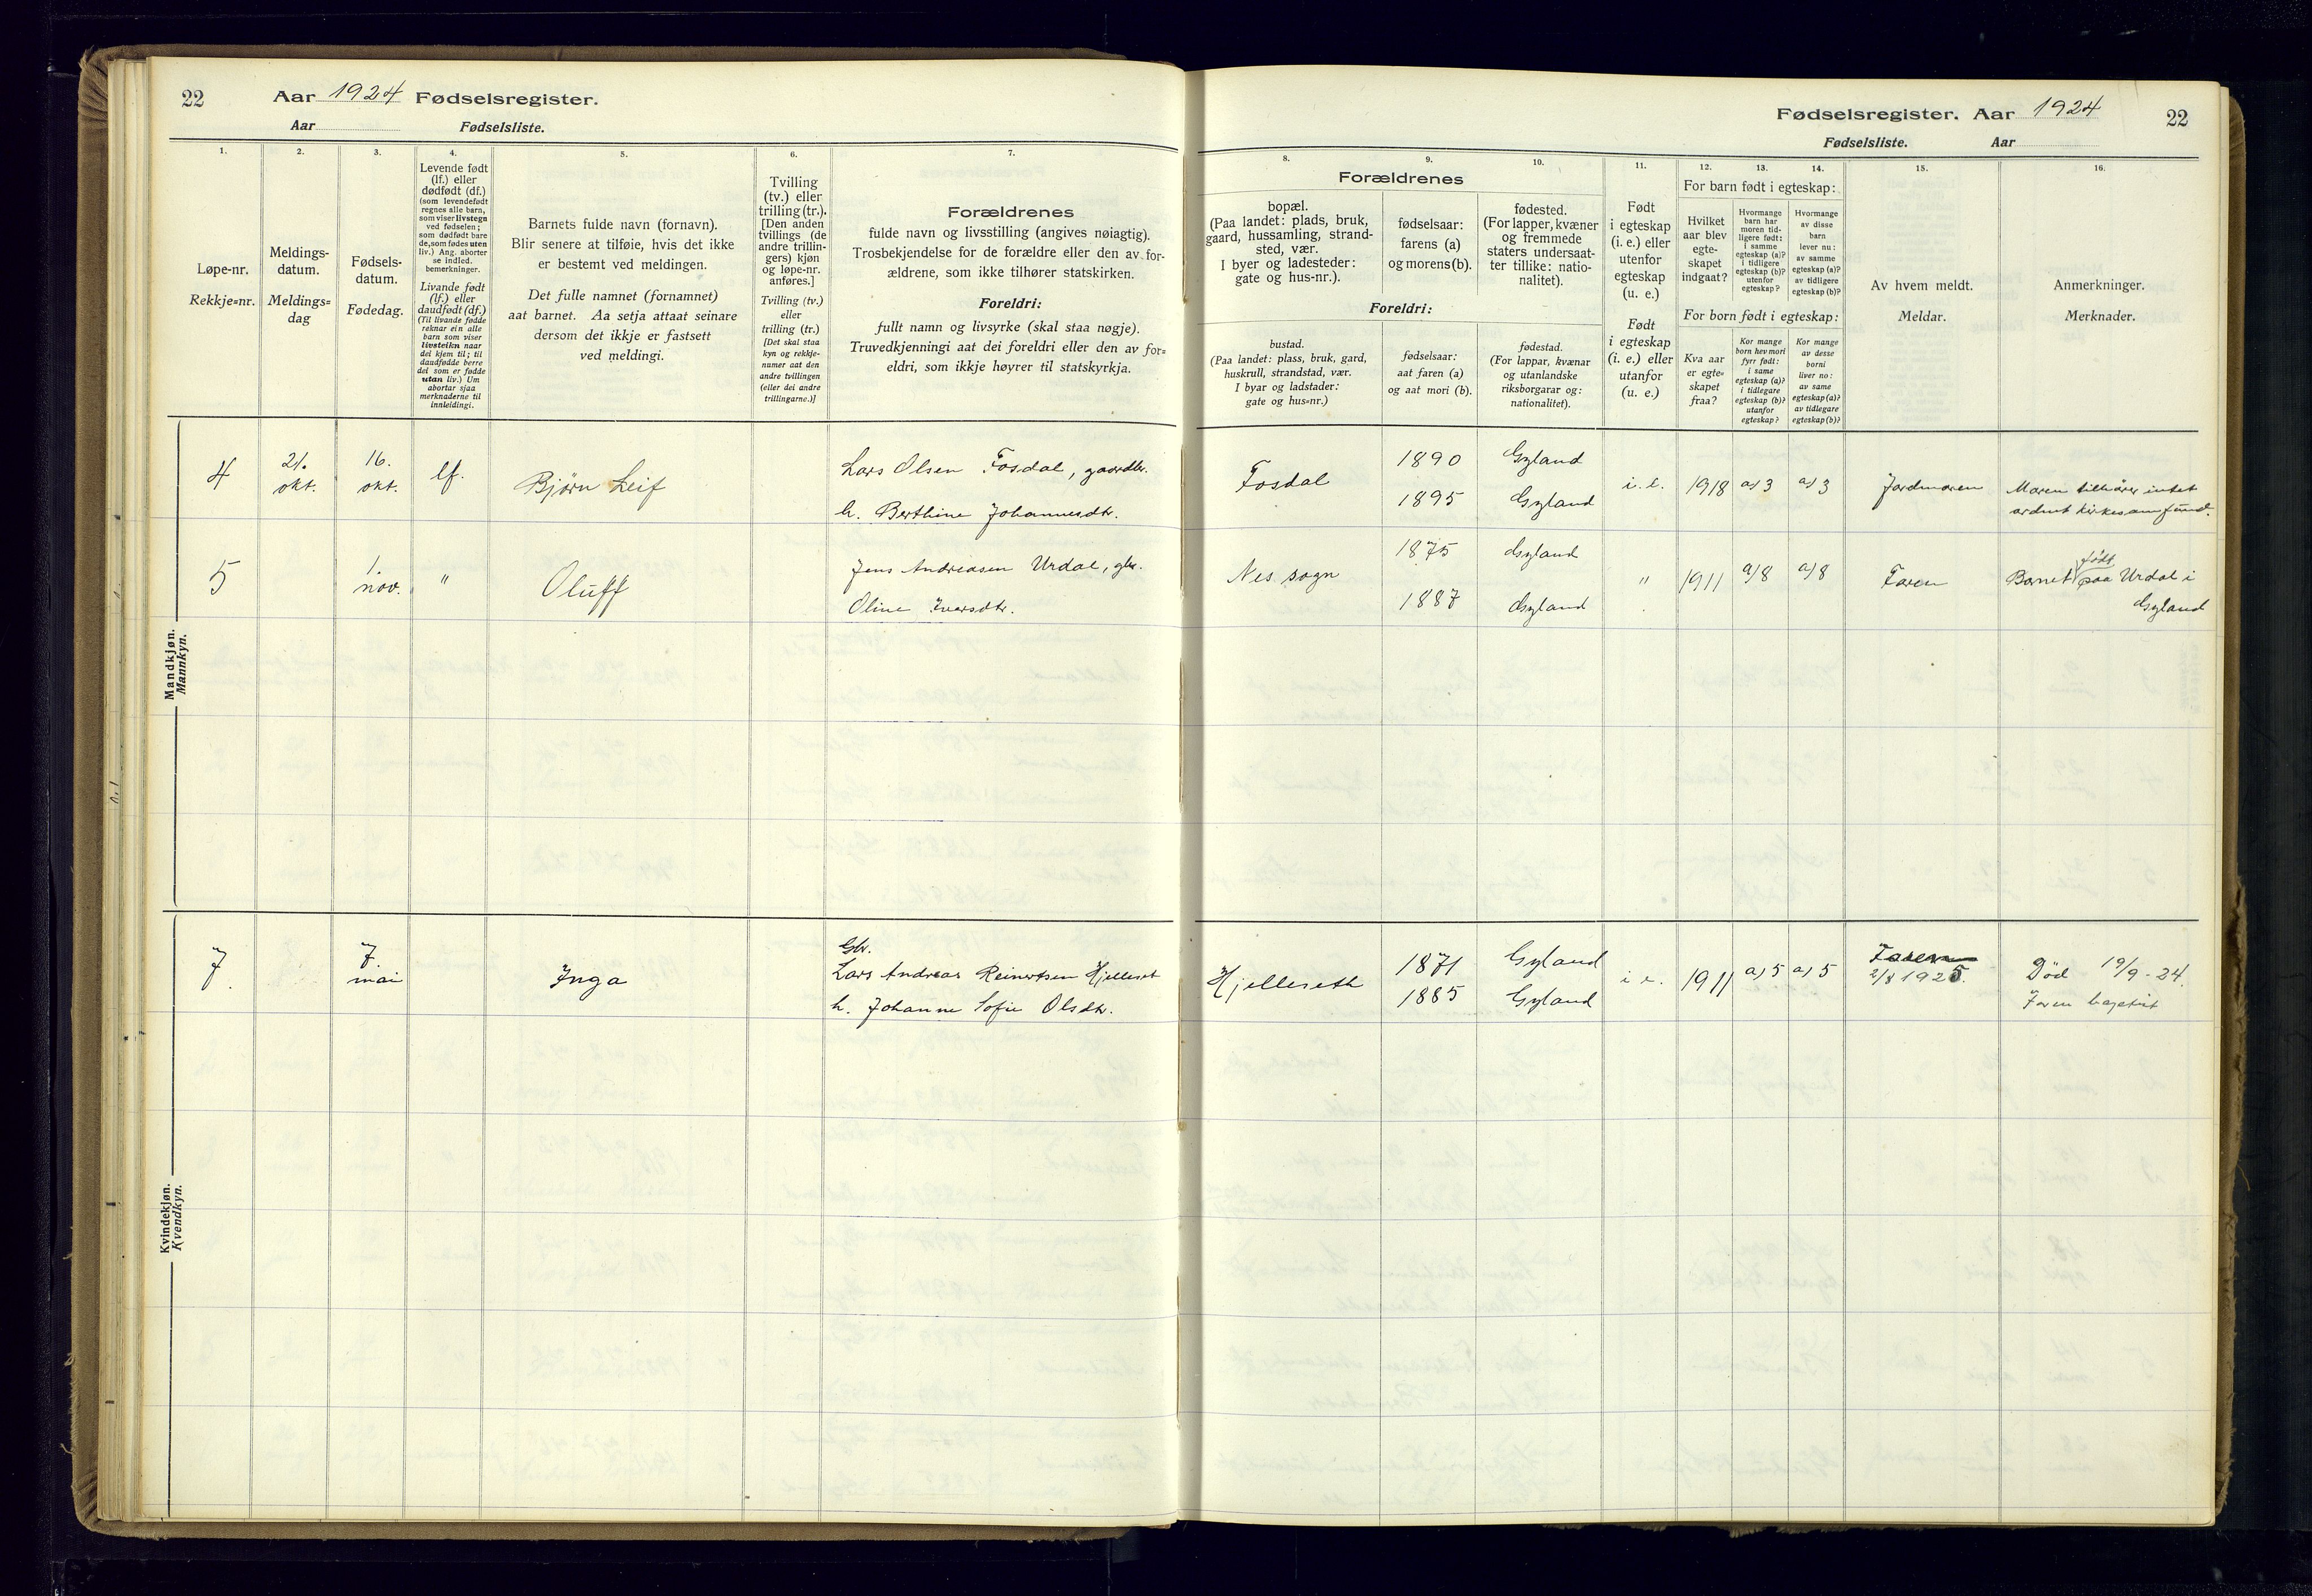 22 Aar 1924 Fødselsregister.
Aar Fødselsliste.
Fødselsregister. Aar 1924 22
Fødselsliste. Aar
1.
Løpe-nr.
Rekkje=nr.
2.
Meldings-
datum.
Meldings=
dag
3.
Fødsels-
datum.
Fødedag.
4.
Levende født
(lf.) eller
dødfødt (df.)
(som levendefødt
regnes alle barn,
som viser livstegn
ved fødselen;
som dødfødt bare
de, som fødes uten
liv.) Ang. aborter
se indled.
bemerkninger.
Livande født
(lf.) eller
daudfødt (df.)
(Til livande fødde
reknar ein alle
barn som viser
livsteikn naar
dei kjem til; til
daudfødde berre
dei som er fødde
utan liv.) Um
abortar sjaa
merknaderne til
innleidingi.
5.
Barnets fulde navn (fornavn).
Blir senere at tilføie, hvis det ikke
er bestemt ved meldingen.
Det fulle namnet (fornamnet)
aat barnet. Aa setja attaat seinare
dersom det ikkje er fastsett
ved meldingi.
6.
Tvilling
(tv.) eller
trilling (tr.).
[Den anden
tvillings (de
andre trillin-
gers) kjøn
og løpe-nr.
anføres.]
Tvilling (tv.)
eller
trilling (tr.)
[Det skal staa
kyn og rekkje-
numer aat den
andre tvillingen
(eller dei andre
trillingarne.)]
7.
Forældrenes
fulde navn og livsstilling (angives nøiagtig).
Trosbekjendelse for de forældre eller den av for-
ældrene, som ikke tilhører statskirken.
Foreldri:
fullt namn og livsyrke (skal staa nøgje).
Truvedkjenningi aat dei foreldri eller den av for=
eldri, som ikkje høyrer til statskyrkja.
Forældrenes
8.
bopæl.
(Paa landet: plads, bruk,
gaard, hussamling, strand-
sted, vær.
I byer og ladesteder:
gate og hus-nr.).
9.
fødselsaar:
farens (a)
og morens (b).
10.
fødested.
(For lapper, kvæner
og fremmede
staters undersaat-
ter tillike: natio-
nalitet).
Foreldri:
bustad.
(Paa landet: plass, bruk, gard,
huskrull, strandstad, vær.
I byar og ladstader:
gate og hus=nr.)
fødselsaar:
aat faren (a)
og aat mori (b).
fødestad.
(For lappar, kvænar
og utanlandske
riksborgarar og:
nationalitet).
11.
Født
i egteskap
(i. e.) eller
utenfor
egteskap
(u. e.)
Født
i egteskap
(i. e.) eller
utanfor
(u. e.)
For barn født i egteskap:
12.
Hvilket
aar blev
egte-
skapet
indgaat?
13.
Hvormange
barn har
moren tid-
ligere født:
i samme
egteskap (a)?
i tidligere
egteskap (b)?
utenfor
egteskap?
14.
Hvormange
av disse
barn
lever nu:
av samme
egteskap (a)?
av tidligere
egteskap (b)?
For born født i egteskap:
Kva aar
er egte=
skapet
fraa?
Kor mange
born hev mori
fyrr født:
i same
egteskap (a)?
i tidlegare
egteskap (b)?
utanfor
egteskap?
Kor mange
av desse
borni
liver no:
av same
egteskap (a)?
av tidlegare
egteskap (b)?
15.
Av hvem meldt.
Meldar.
16.
Anmerkninger.
Merknader.
Mandkjøn.
Mannkyn.
4 21. okt. 16. okt. lf. Bjørn Leif Lars Olsen Fosdal, gaardbr. Fosdal 1890 Gyland i. e. 1918 a) 3 a) 3 Jordmoren Moren tilhører intet
h. Berthine Johannesdtr. 1895 Gyland ordnet kirkesamfund.
5 1. nov. " Oluff Jens Andreasen Urdal, gbr. Nes sogn 1875 Gyland " 1911 a/8 a/8 Faren Barnet født paa Urdal i
Oline Ivarsdtr. 1887 Gyland Gyland
Kvindekjøn.
Kvendkyn.
7. 7. mai Inga Gbr.
Lars Andreas Reinertsen Hjelleset Hjelleseth 1871 Gyland i e. 1911 a) 5 a) 5 Faren Død 19/9-24.
h. Johanne Sofie Olsdtr. 1885 Gyland 2/8 1925. Faren baptist